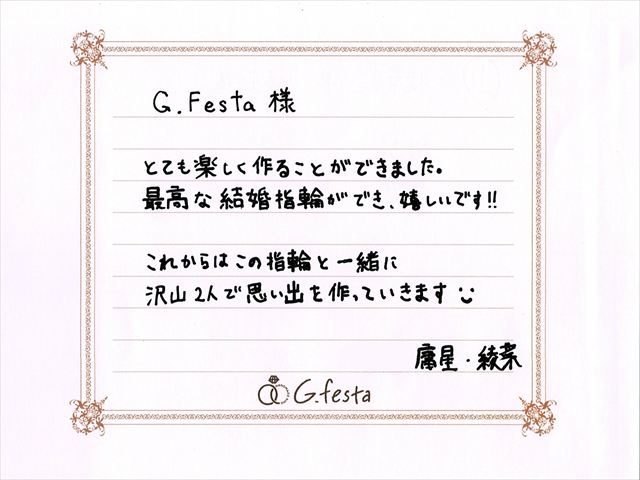 G.Festa 様
とても楽しく作ることができました。
最高な結婚指輪ができ、嬉しいです!!
これからはこの指輪と一緒に
沢山2人で思い出を作っていきます
星・綾菜
G.festa